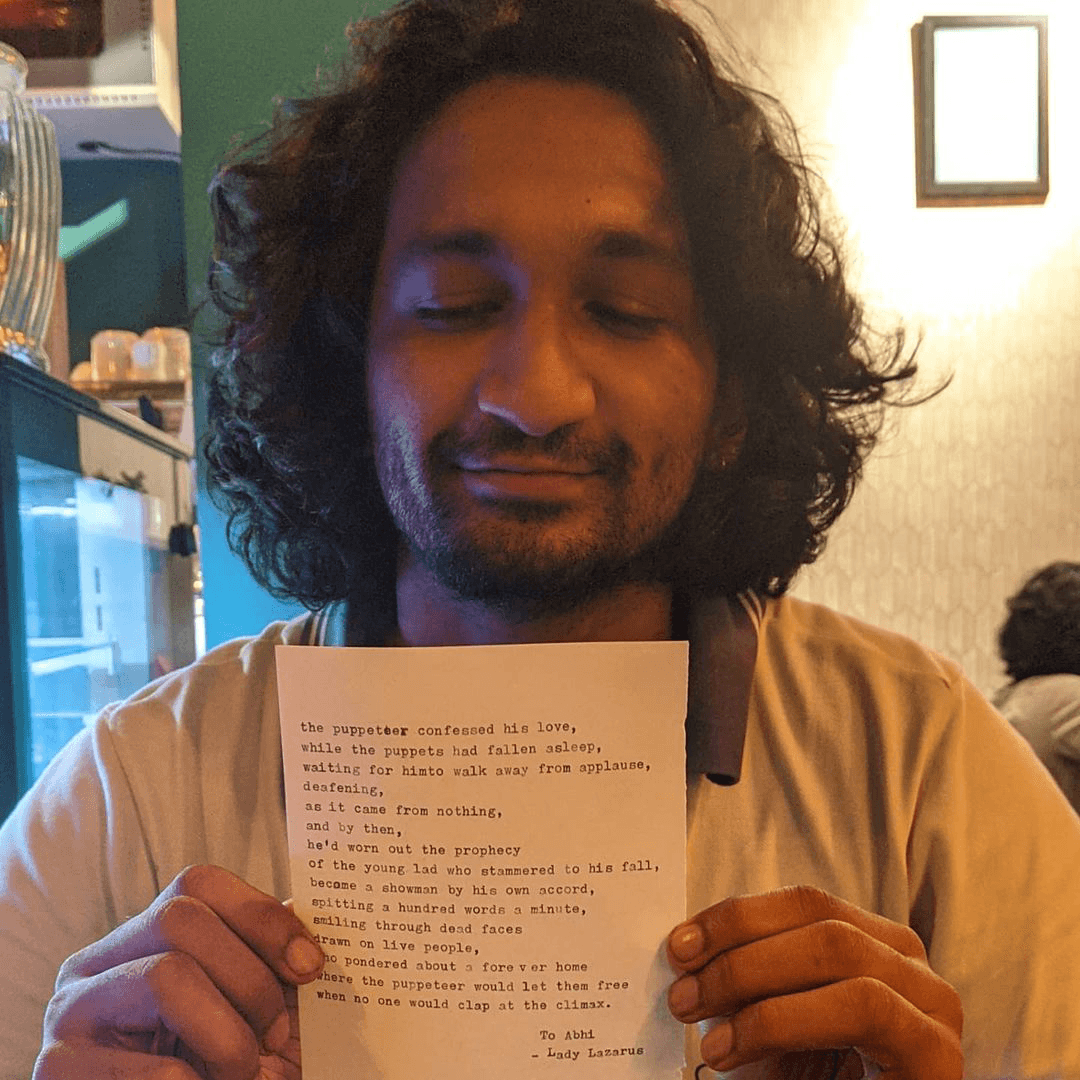 the puppeteer confessed his love,
while the puppets had fallen asleep,
waiting for himto walk away from applause,
deafening,
as it came from nothing,
and by then,
he'd worn out the prophecy
of the young lad who stammered to his fall,
become a showman by his own accord,
spitting a hundred words a minute,
smiling through dead faces
drawn on live people,
who pondered about a forever home
where the puppeteer would let them free
when no one would clap at the climax.
To Abhi
- Lady Lazarus